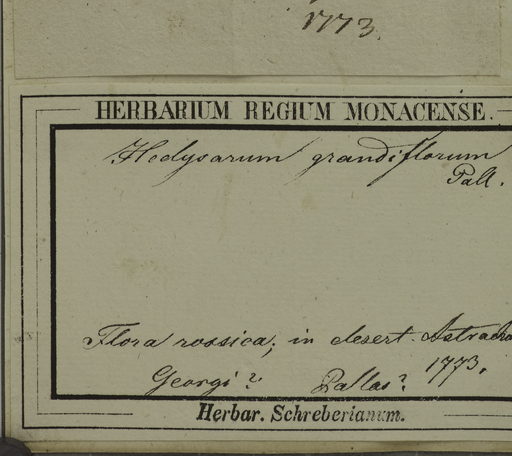 1773.
HERBARIUM REGIUM MONACENSE.
Hedysarum grandiflorum
Pall.
Flora rossica; in desert. Astrach
1773.
Georgi? Pallas?
Herbar. Schreberianum.